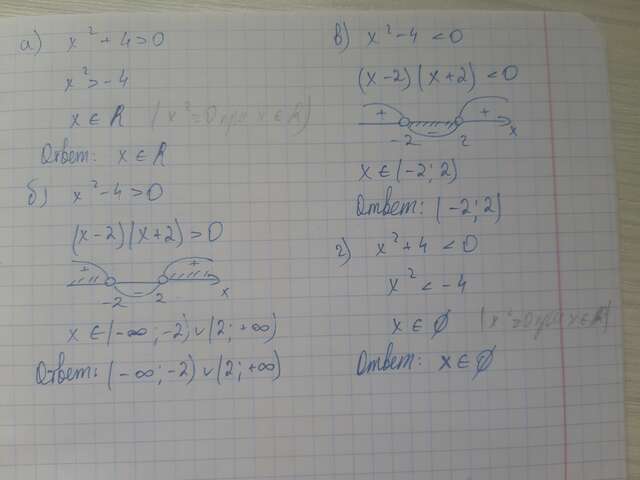 а) x² + 4 > 0
x² > -4
x ∈ R (x² ≥ 0 при x ∈ R)
Ответ: x ∈ R
б) x² - 4 > 0
(x - 2)(x + 2) > 0
+ - +
-2 2 x
x ∈ (-∞; -2) ∪ (2; +∞)
Ответ: (-∞; -2) ∪ (2; +∞)
в) x² - 4 < 0
(x - 2)(x + 2) < 0
+ - +
-2 2 x
x ∈ (-2; 2)
Ответ: (-2; 2)
г) x² + 4 < 0
x² < -4
x ∈ ∅ (x² ≥ 0 при x ∈ R)
Ответ: x ∈ ∅